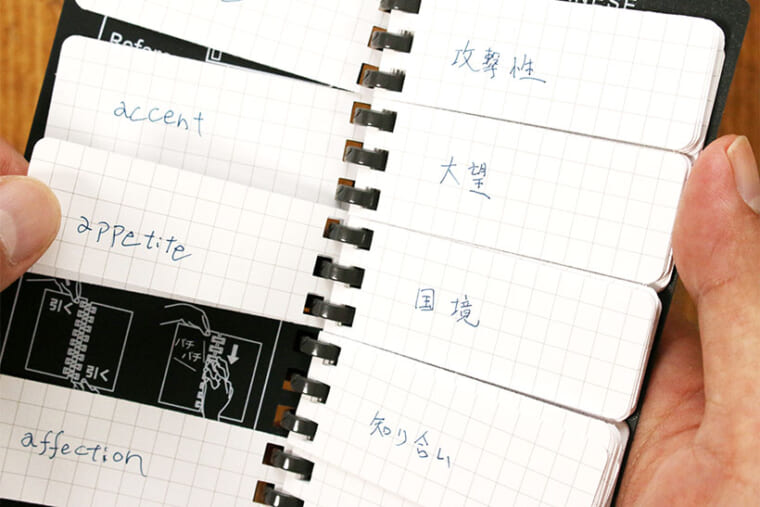 accent
appetite
引く
引く
パチ
パチ
affection
攻撃性
大望
国境
知り合い